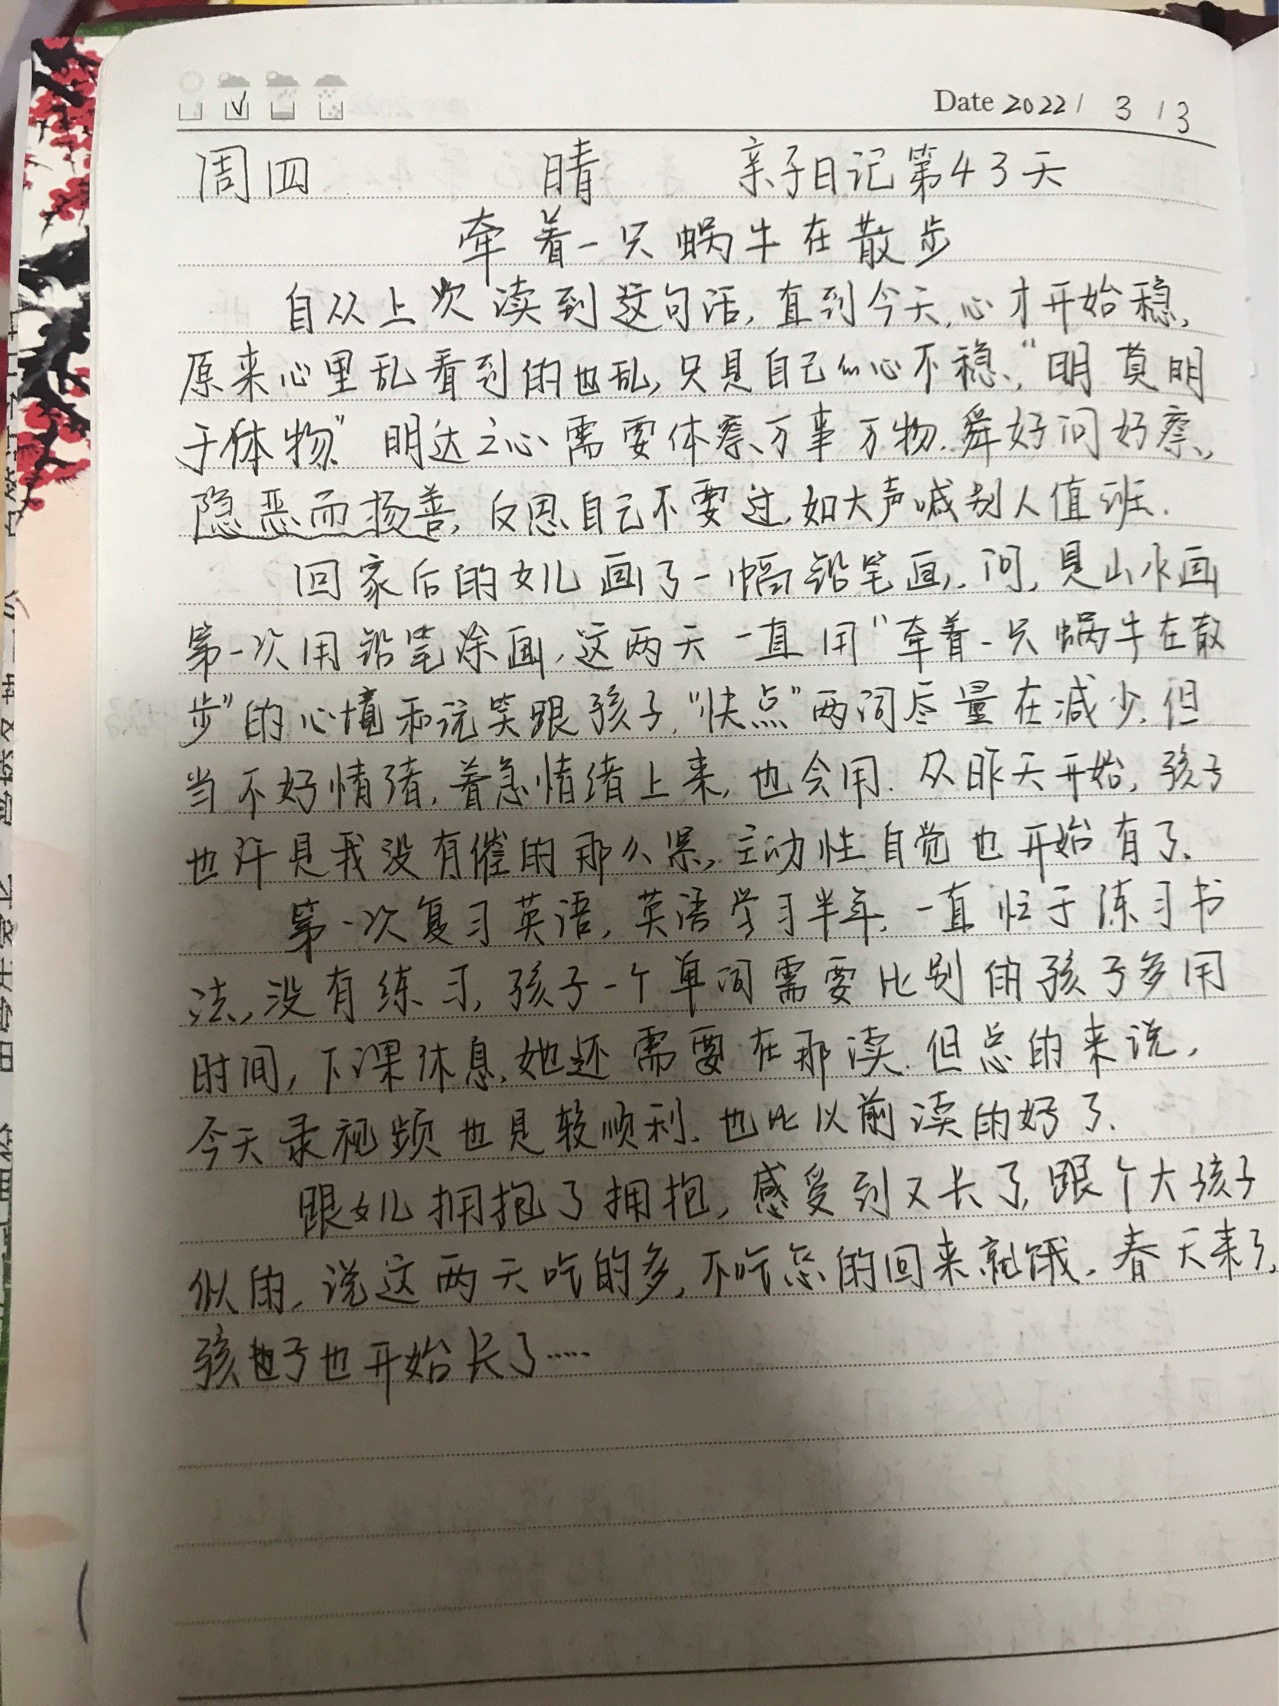 Date 2022 / 3 / 3
周四 晴 亲子日记第43天
牵着一只蜗牛在散步
自从上次读到这句话,直到今天,心才开始稳,
原来心里乱看到的也乱,只是自己的心不稳、“明莫明
于体物”明达之心需要体察万事万物.舜好问好察,
隐恶而扬善,反思自己不要过,如大声喊别人值班.
回家后的女儿画了一幅铅笔画,问,是山水画
第一次用铅笔涂画,这两天一直用“牵着一只蜗牛在散
步”的心境和说笑跟孩子,“快点”两词尽量在减少,但
当不好情绪,着急情绪上来,也会用.从昨天开始,孩子
也许是我没有催的那么紧,主动性自觉也开始有了、
第一次复习英语,英语学习半年,一直忙于练习书
法,没有练习,孩子一个单词需要比别的孩子多用
时间,下课休息,她还需要在那读.但总的来说,
今天录视频也是较顺利、也比以前读的好了、
跟女儿拥抱了拥抱,感受到又长了,跟个大孩子
似的,说这两天吃的多,不吃总的回来就饿、春天来了,
孩子也开始长了……